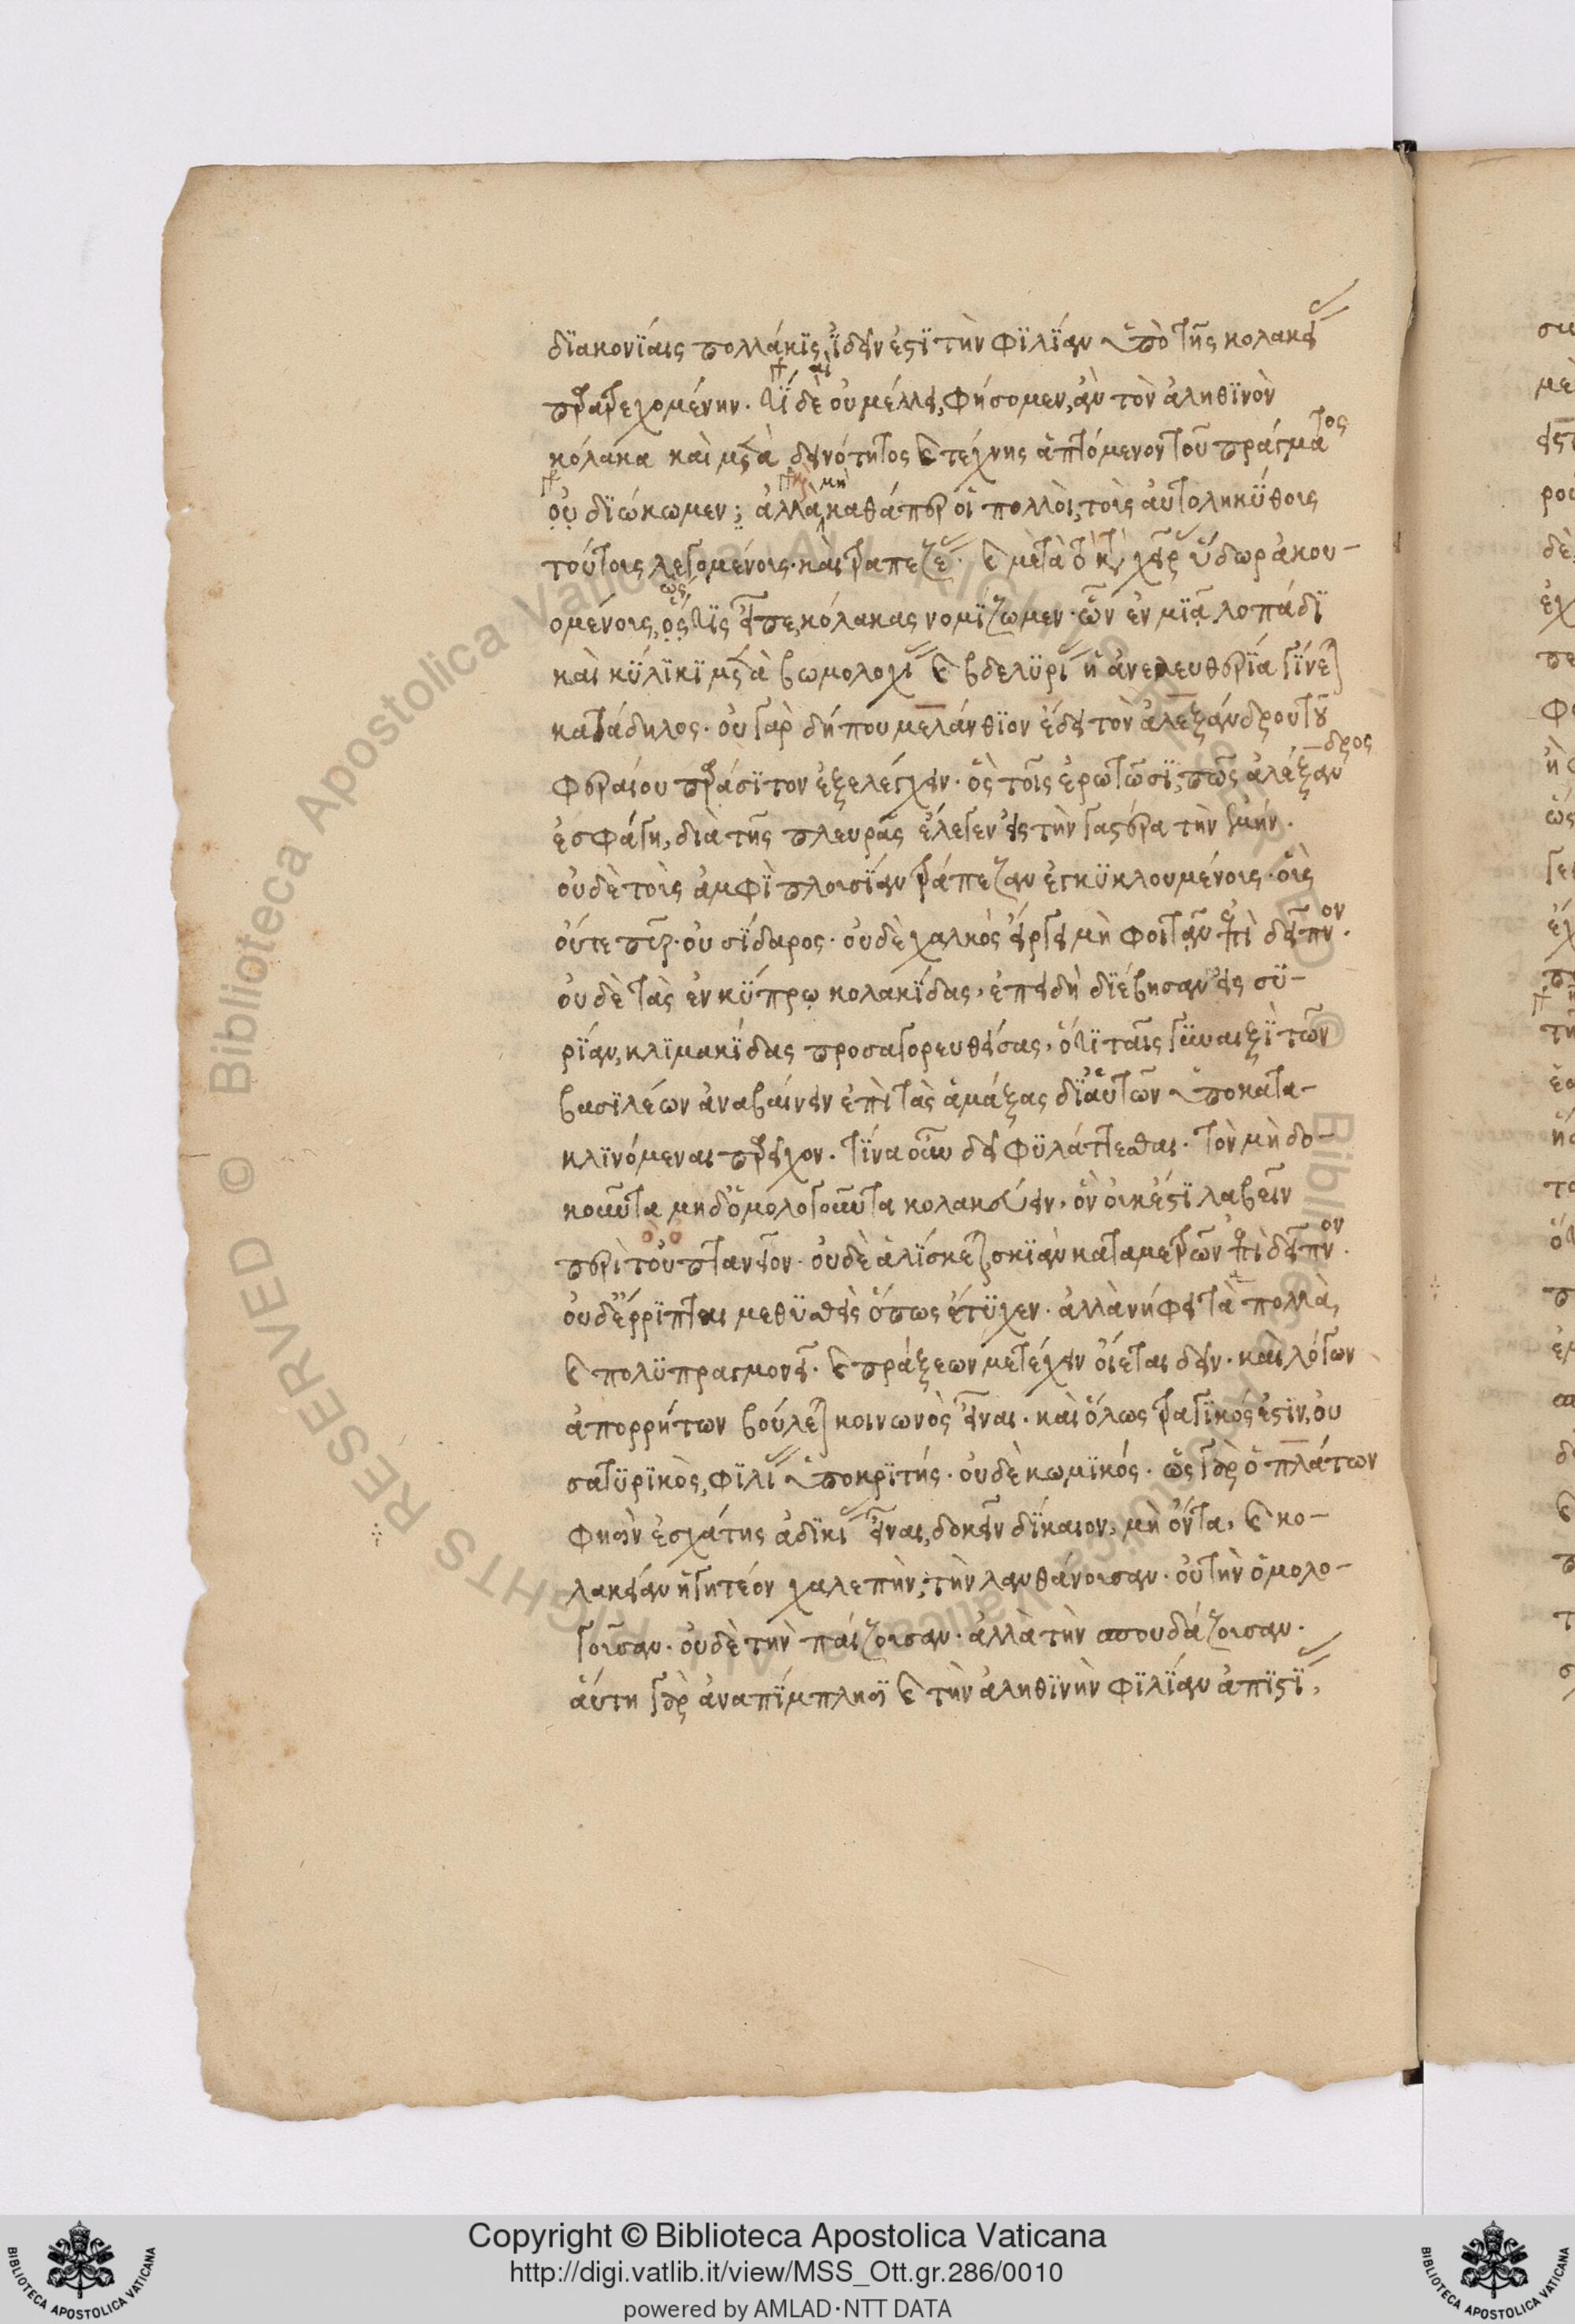 διακονίαις πολλάκις ἰδεῖν ἐστὶ τὴν φιλίαν ὑπὸ τῆς κολακεί
παρατρεχομένην. τί δὲ οὐ μέλλει, φήσομεν, ἂν τὸν ἀληθινὸν
κόλακα καὶ μετὰ δεινότητος καὶ τέχνης ἁπτόμενον τοῦ πράγματος
οὐ διώκωμεν; ἀλλὰ μὴ καθάπερ οἱ πολλοὶ, τοῖς αὐτοληκύθοις
τούτοις λεγομένοις. καὶ τραπεζέ. καὶ μετὰ τὸ κατὰ χειρ ὕδωρ ἀκου-
ομένοις, ὥς τις εἶπε, κόλακας νομίζωμεν. ὧν ἐν μιᾷ λοπάδι
καὶ κύλικι μετὰ βωμολοχί καὶ βδελυρί ἡ ἀνελευθερία γίνεται
κατάδηλος. οὐ γὰρ δήπου μελάνθιον ἔδει τὸν ἀλεξάνδρου τοῦ
φεραίου παράσιτον ἐξελέγχειν. ὃς τοῖς ἐρωτῶσι, πῶς ἀλέξανδρος
ἐσφάγη, διὰ τῆς πλευρᾶς ἔλεγεν εἰς τὴν γαστέρα τὴν ἐμήν.
οὐδὲ τοῖς ἀμφὶ πλουσίαν τράπεζαν ἐγκυκλουμένοις. οἷς
οὔτε πῦρ. οὐ σίδαρος. οὐδὲ χαλκὸς εἴργει μὴ φοιτᾷν ἐπὶ δεῖπνον.
οὐδὲ τὰς ἐν κύπρῳ κολακίδας, ἐπειδὴ διέβησαν εἰς συ-
ρίαν, κλιμακίδας προσαγορευθείσας, ὅτι ταῖς γυναιξὶ τῶν
βασιλέων ἀναβαίνειν ἐπὶ τὰς ἁμάξας δι' αὐτῶν ὑποκατα-
κλινόμεναι παρεῖχον. τίνα οὖν δεῖ φυλάττεσθαι. τὸν μὴ δο-
κοῦντα μηδ' ὁμολογοῦντα κολακεύειν, ὃν οὐκ ἔστι λαβεῖν
περὶ τοὐπτανεῖον. οὐδὲ ἁλίσκεται σκιὰν καταμετρῶν ἐπὶ δεῖπνον.
οὐδ' ἔρριπται μεθυσθεὶς ὅπως ἔτυχεν. ἀλλὰ νήφει τὰ πολλὰ,
καὶ πολυπραγμονεῖ. καὶ πράξεων μετέχειν οἴεται δεῖν. καὶ λόγων
ἀπορρήτων βούλεται κοινωνὸς εἶναι. καὶ ὅλως τραγικός ἐστιν, οὐ
σατυρικὸς, φιλί ὑποκριτής. οὐδὲ κωμικός. ὡς γὰρ ὁ πλάτων
φησὶν ἐσχάτης ἀδικί εἶναι, δοκεῖν δίκαιον, μὴ ὄντα, καὶ κο-
λακείαν ἡγητέον χαλεπὴν, τὴν λανθάνουσαν. οὐ τὴν ὁμολο-
γοῦσαν. οὐδὲ τὴν παίζουσαν. ἀλλὰ τὴν σπουδάζουσαν.
αὕτη γὰρ ἀναπίμπλησι καὶ τὴν ἀληθινὴν φιλίαν ἀπιστί,
Copyright © Biblioteca Apostolica Vaticana
http://digi.vatlib.it/view/MSS_Ott.gr.286/0010
powered by AMLAD·NTT DATA